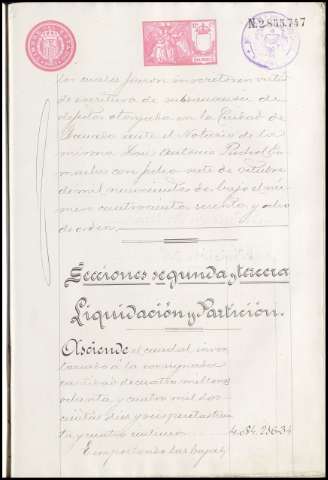 N.2.855.747
los cuales fueron inscritos en virtud
de escritura de subsanación de
defectos otorgada en la Ciudad de
ante el Notario de la
misma Don Antonio
con fecha siete de Octubre
de mil novecientos bajo el nú-
mero cuatrocientos sesenta y ocho
de orden.
Secciones segunda y tercera
Liquidación y Partición.
Asciende el caudal inven-
tariado a la consignada
cantidad de cuatro millones
ochenta y cuatro mil dos-
cientas diez y seis pesetas trein-
ta y cuatro céntimos 4.084.216-34
E importando las bajas